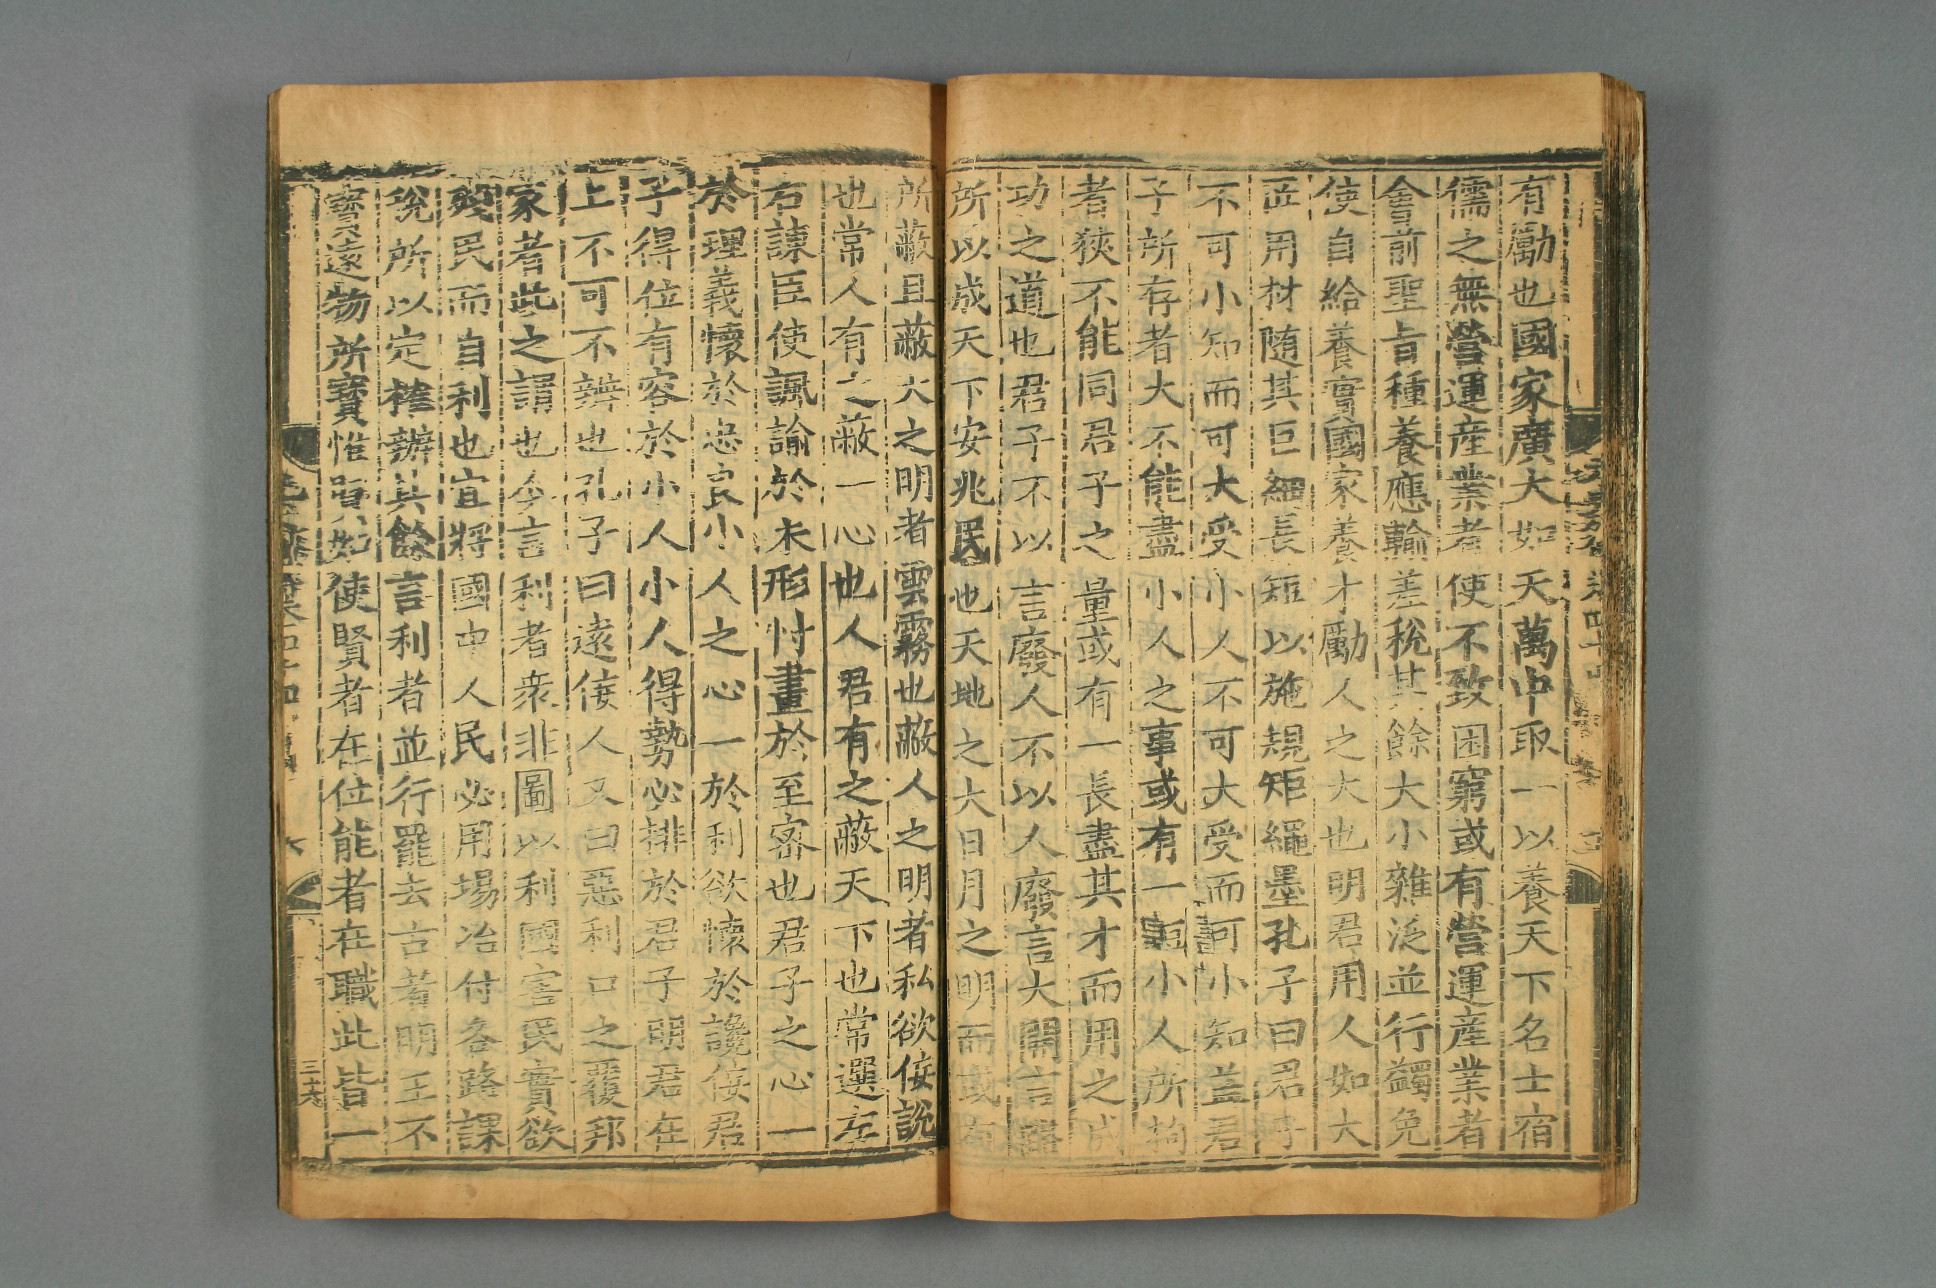 有勵也國家廣大如天萬中取一以養天下名士宿
儒之無營運産業者使不致困窮或有營運産業者
會前聖旨種養應輸差稅其餘大小雜泛並行蠲免
使自給養實國家養才勵人之大也明君用人如大
匠用材随其巨細長短以施規矩繩墨孔子曰君子
不可小知而可大受小人不可大受而可小知盖君
子所存者大不能盡小人之事或有一短小人所拘
者狹不能同君子之量或有一長盡其才而用之成
功之道也君子不以言廢人不以人廢言大開言路
所以成天下安兆民也天地之大日月之明而或有
所蔽且蔽天之明者雲霧也蔽人之明者私欲佞說
也常人有之蔽一心也人君有之蔽天下也常選左
右諫臣使諷諭於未形忖畫於至密也君子之心一
於理義懷於忠良小人之心一於利欲懷於讒佞君
子得位有容於小人小人得勢必排於君子明君在
上不可不辨也孔子曰遠佞人又曰惡利口之覆邦
家者此之謂也今言利者衆非圖以利國害民實欲
殘民而自利也宜將國中人民必用場冶付各路課
稅所以定榷辦其餘言利者並行罷去古者明王不
寳遠物所寳惟賢如使賢者在位能者在職此皆一
三十六